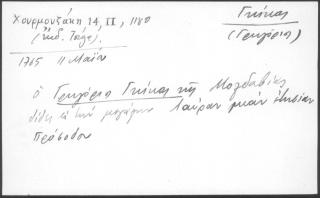 Χουρμουζάκη 14, II, 1180
(ἐκδ. Τάφε)
Γκίκας
(Γρηγόριος)
1765 11 Μαΐου
ὁ Γρηγόριος Γκίκας τῆς Μολδαβίας
δίδει εἰς τὴν μεγάλην Λαύραν μίαν ἐτησίαν
πρόσοδον